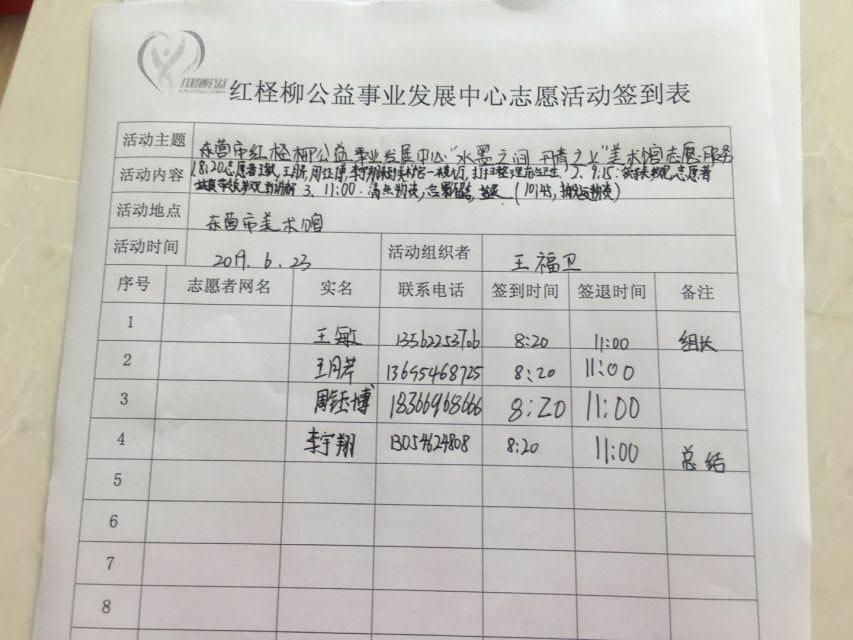 红柽柳公益
红柽柳公益事业发展中心志愿活动签到表
活动主题 东营市红柽柳公益事业发展中心"水墨之间 丹青之上"美术馆志愿服务
活动内容 1.8:20志愿者王敏,王月芹,周钰博,李宇翔 打扫整理 卫生. 2. 9:15: 志愿者
3. 11:00: 清点物资, 合影留念
活动地点 东营市美术馆
活动时间 2019. 6. 23 活动组织者 王福卫
序号 志愿者网名 实名 联系电话 签到时间 签退时间 备注
1 王敏 13562253706 8:20 11:00 组长
2 王月芹 13695468725 8:20 11:00
3 周钰博 18366968666 8:20 11:00
4 李宇翔 13054624808 8:20 11:00 总结
5
6
7
8